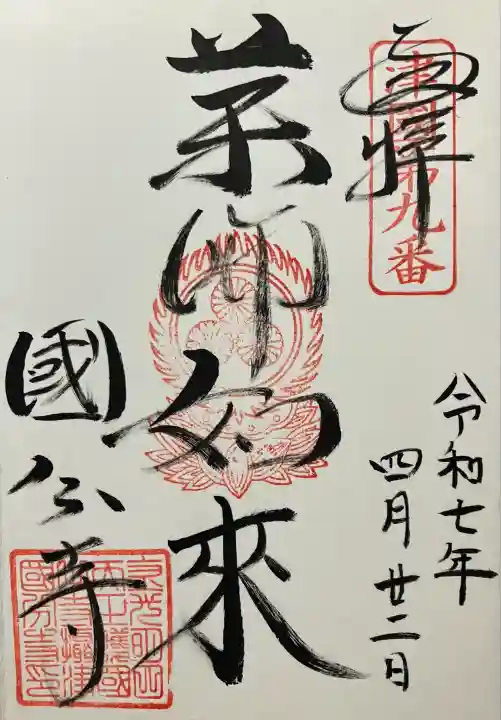 奉拝
津國第九番
薬師如來
國分寺
令和七年
四月廿二日